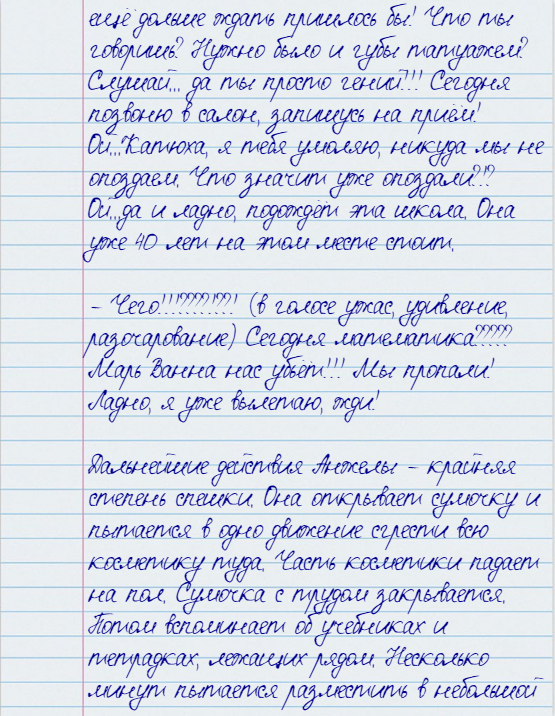 ещё дольше ждать пришлось бы! Что ты
говоришь? Нужно было и губы татуажем?
Слушай... да ты просто гений!!! Сегодня
позвоню в салон, запишусь на приём!
Ой...Катюха, я тебя умоляю, никуда мы не
опоздаем. Что значит уже опоздали?!?
Ой...да и ладно, подождёт эта школа. Она
уже 40 лет на этом месте стоит.
– Чего!!!????!??! (в голосе ужас, удивление,
разочарование) Сегодня математика?????
Марь Ванна нас убьёт!!! Мы пропали!
Ладно, я уже вылетаю, жди!
Дальнейшие действия Анжелы – крайняя
степень спешки. Она открывает сумочку и
пытается в одно движение сгрести всю
косметику туда. Часть косметики падает
на пол. Сумочка с трудом закрывается.
Потом вспоминает об учебниках и
тетрадках, лежащих рядом. Несколько
минут пытается разместить в небольшой